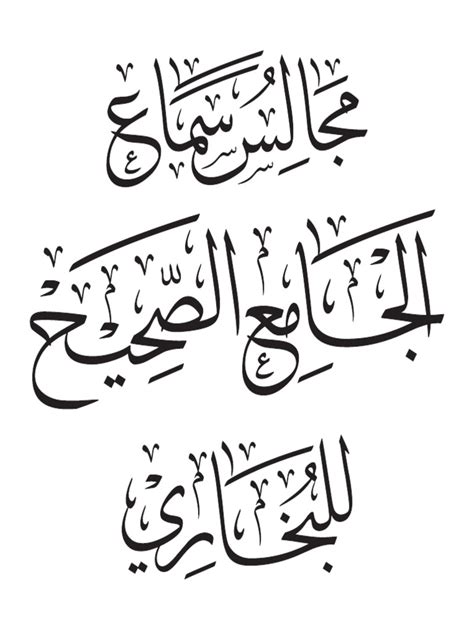 مَجَالِسُ سَمَاعِ
الجَامِعِ الصَّحِيْحِ
لِلبُخَارِيْ